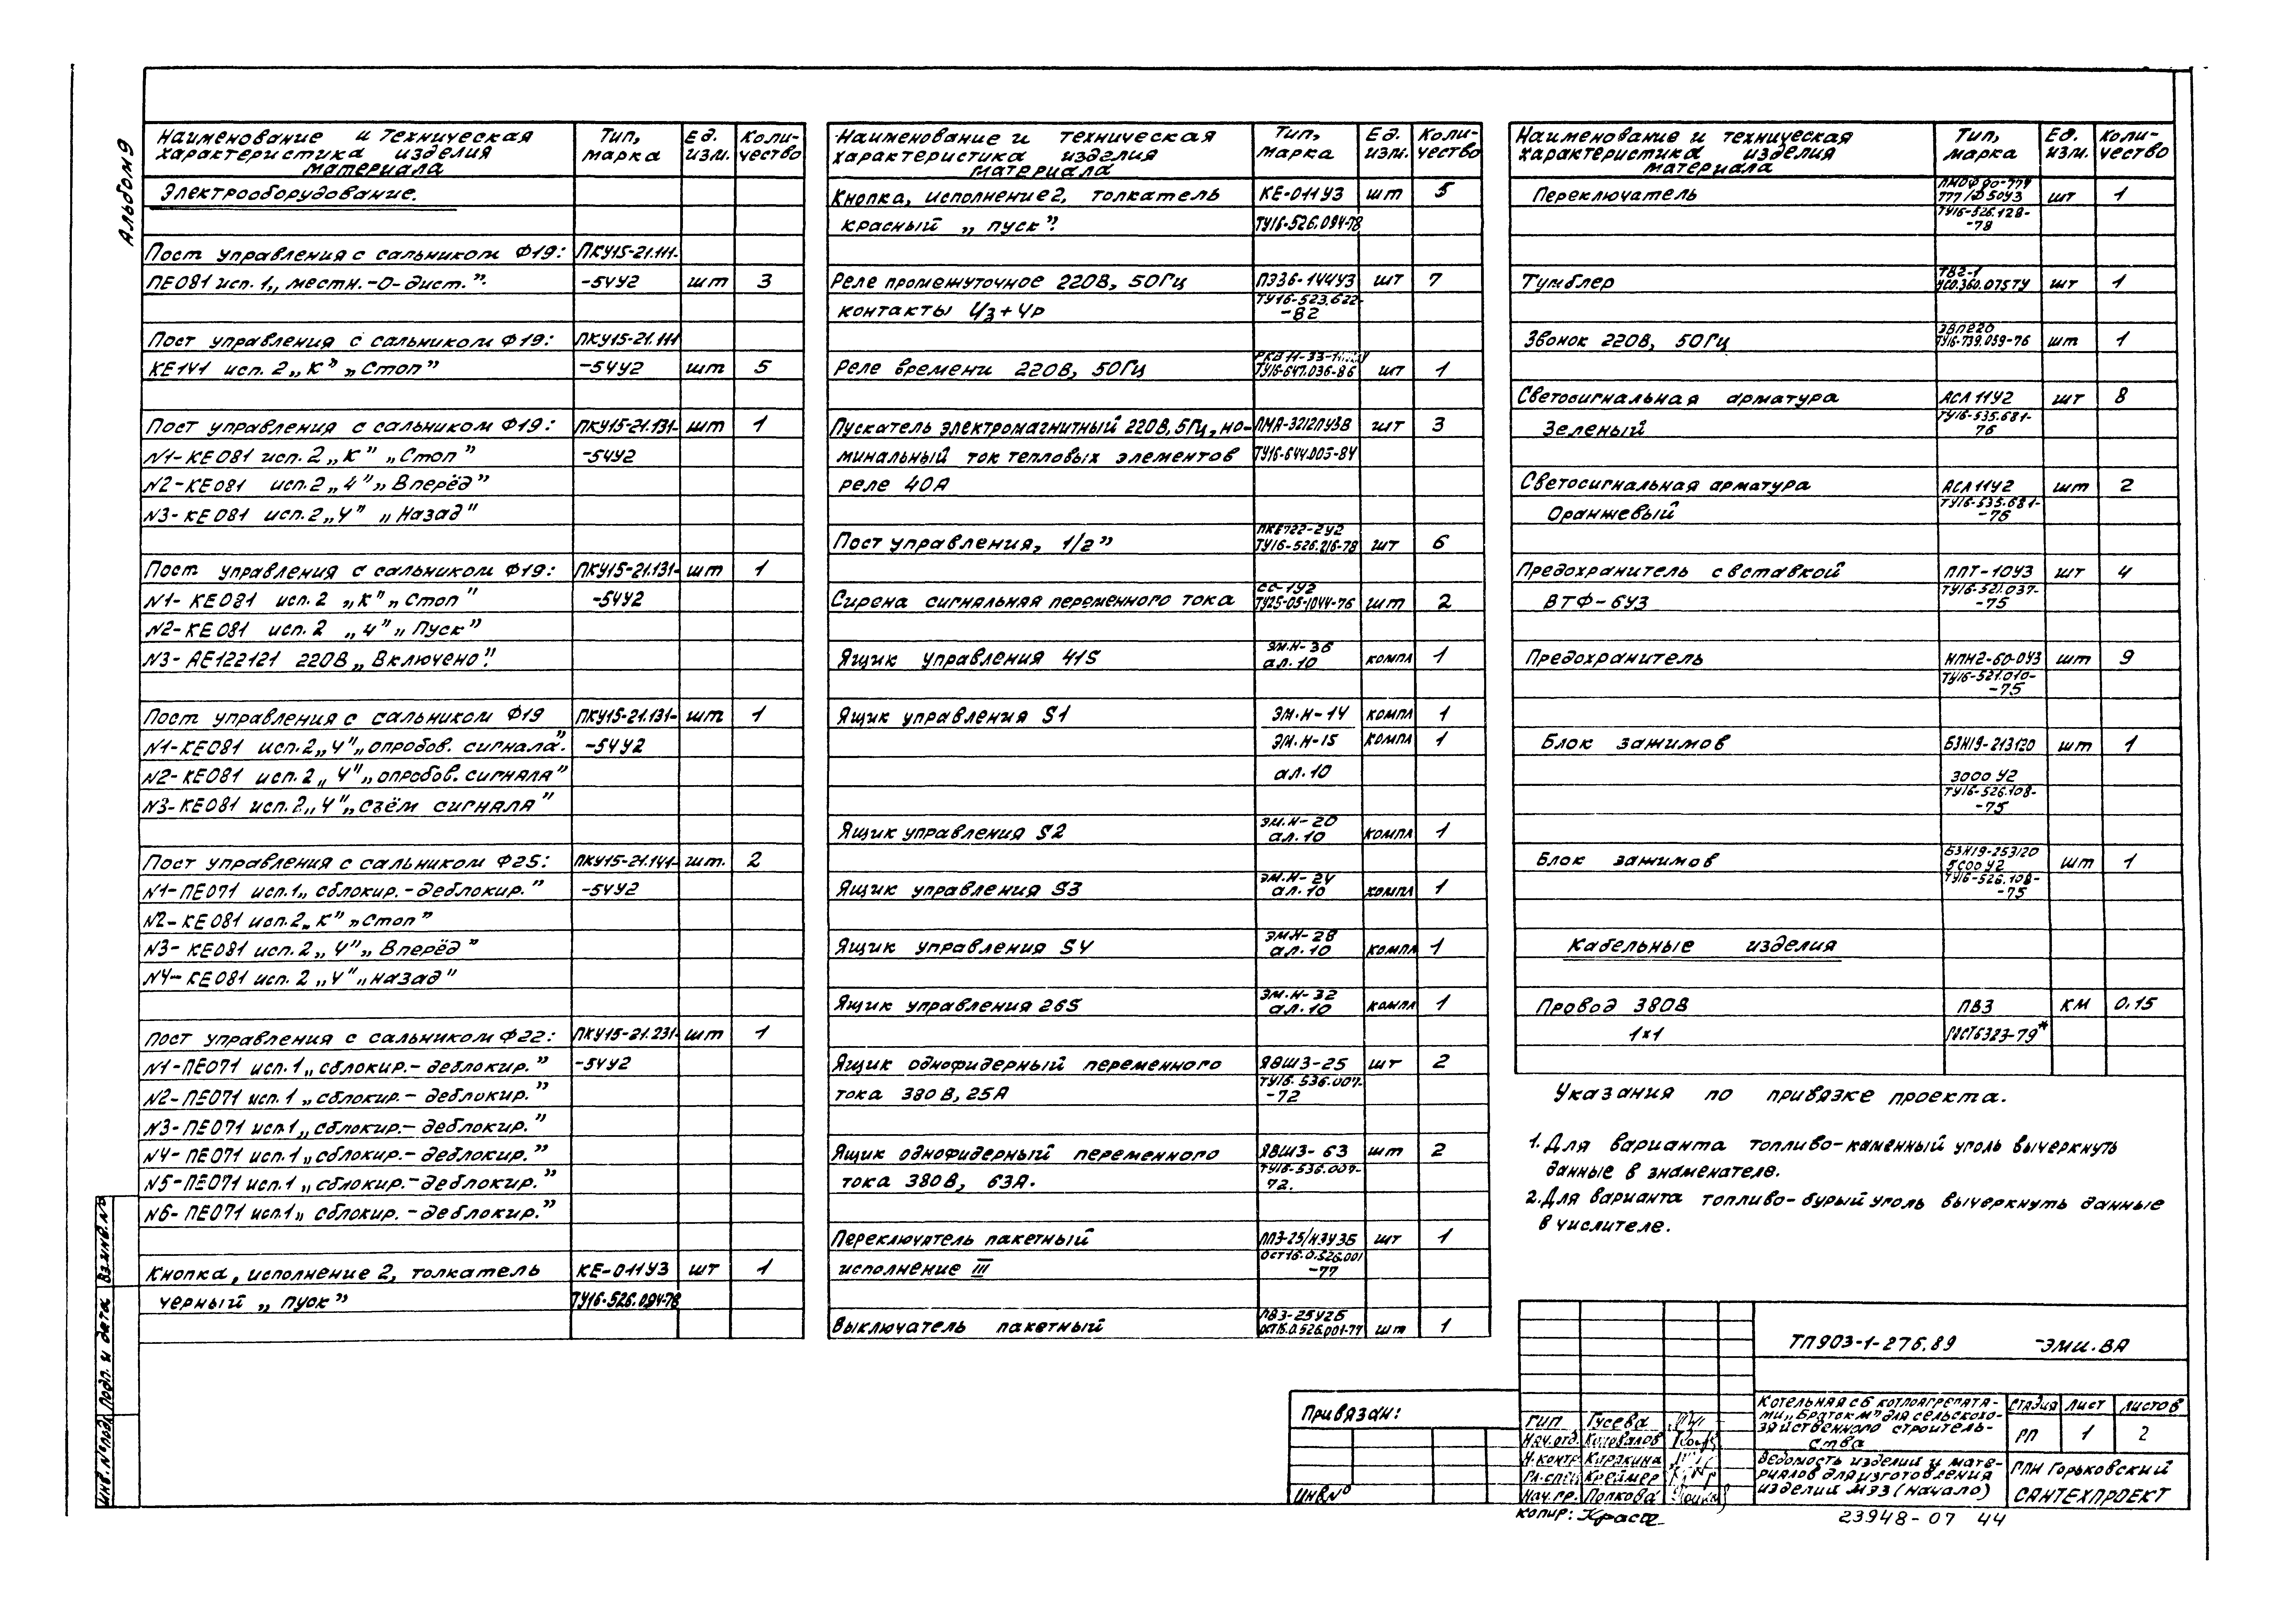 Альбом 9
Наименование и техническая характеристика изделия материала | Тип, марка | Ед. изм. | Коли-чество
Электрооборудование.
Пост управления с сальником Ф19: ПКУ15-21.111-
ПЕ081 исп. 1 „местн.-О-дист.". -54У2 шт 3
Пост управления с сальником Ф19: ПКУ15-21.111
КЕ141 исп. 2 „К" „Стоп" -54У2 шт 5
Пост управления с сальником Ф19: ПКУ15-21.131- шт 1
N1-КЕ081 исп. 2 „К" „Стоп" -54У2
N2-КЕ081 исп. 2 „Ч" „Вперёд"
N3-КЕ081 исп. 2 „Ч" „Назад"
Пост управления с сальником Ф19: ПКУ15-21.131- шт 1
N1-КЕ081 исп. 2 „К" „Стоп" -54У2
N2-КЕ081 исп. 2 „Ч" „Пуск"
N3-АЕ122121 220В „Включено".
Пост управления с сальником Ф19 ПКУ15-21.131- шт 1
N1-КЕ081 исп. 2 „Ч" „опробов. сигнала". -54У2
N2-КЕ081 исп. 2 „Ч" „опробов. сигнала"
N3-КЕ081 исп. 2 „Ч" „Съём сигнала"
Пост управления с сальником Ф25: ПКУ15-21.141- шт. 2
N1-ПЕ071 исп. 1 „сблокир.-деблокир." -54У2
N2-КЕ081 исп. 2 „К" „Стоп"
N3-КЕ081 исп. 2 „Ч" „Вперёд"
N4-КЕ081 исп. 2 „Ч" „назад"
Пост управления с сальником Ф22: ПКУ15-21.231- шт 1
N1-ПЕ071 исп. 1 „сблокир.-деблокир." -54У2
N2-ПЕ071 исп. 1 „сблокир.-деблокир."
N3-ПЕ071 исп. 1 „сблокир.-деблокир."
N4-ПЕ071 исп. 1 „сблокир.-деблокир."
N5-ПЕ071 исп. 1 „сблокир.-деблокир."
N6-ПЕ071 исп. 1 „сблокир.-деблокир."
Кнопка, исполнение 2, толкатель КЕ-011У3 шт 1
черный „пуск" ТУ16-526.094-78
Наименование и техническая характеристика изделия материала | Тип, марка | Ед. изм. | Коли-чество
Кнопка, исполнение 2, толкатель КЕ-011У3 шт 5
красный „пуск". ТУ16-526.094-78
Реле промежуточное 220В, 50Гц ПЭ36-144У3 шт 7
контакты 4з+4р ТУ16-523.622-82
Реле времени 220В, 50Гц ТУ16-647.036-86 шт 1
Пускатель электромагнитный 220В, 5Гц, но- ПМА-3212ПУ3В шт 3
минальный ток тепловых элементов ТУ16-644.005-84
реле 40А
Пост управления, 1/2" ПКЕ722-2У2 ТУ16-526.216-78 шт 6
Сирена сигнальная переменного тока СС-1У2 ТУ25-05-1044-76 шт 2
Ящик управления 41S ЭМ.Н-36 ал.10 компл 1
Ящик управления S1 ЭМ.Н-14 компл 1
ЭМ.Н-15 компл 1
ал.10
Ящик управления S2 ЭМ.Н-20 ал.10 компл 1
Ящик управления S3 ЭМ.Н-24 ал.10 компл 1
Ящик управления S4 ЭМ.Н-28 ал.10 компл 1
Ящик управления 26S ЭМ.Н-32 ал.10 компл 1
Ящик однофидерный переменного ЯВШ3-25 шт 2
тока 380В, 25А ТУ16.536.007-72
Ящик однофидерный переменного ЯВШ3-63 шт 2
тока 380В, 63А. ТУ16-536.007-72.
Переключатель пакетный ПП3-25/Н3У3Б шт 1
исполнение III ОСТ16.0.526.001-77
Выключатель пакетный ПВ3-25У2Б ОСТ16.0.526.001-77 шт 1
Наименование и техническая характеристика изделия материала | Тип, марка | Ед. изм. | Коли-чество
Переключатель шт 1
ТУ16-526.128-78
Тумблер ТВ2-1 УСО.360.075ТУ шт 1
Звонок 220В, 50Гц ЗВП220 ТУ16-739.059-76 шт 1
Светосигнальная арматура АСЛ11У2 шт 8
Зеленый ТУ16-535.681-76
Светосигнальная арматура АСЛ11У2 шт 2
Оранжевый ТУ16-535.681-76
Предохранитель с вставкой ППТ-10У3 шт 4
ВТФ-6У3 ТУ16-521.037-75
Предохранитель НПН2-60-0У3 шт 9
ТУ16-521.010-75
Блок зажимов БЗН19-213120 шт 1
3000 У2
ТУ16-526.108-75
Блок зажимов БЗН19-253120 5С00У2 шт 1
ТУ16-526.108-75
Кабельные изделия
Провод 380В ПВ3 км 0.15
1×1 ГОСТ6323-79*
Указания по привязке проекта.
1. Для варианта топливо-каменный уголь вычеркнуть
данные в знаменателе.
2. Для варианта топливо-бурый уголь вычеркнуть данные
в числителе.
ТП903-1-276.89 -ЭМИ.ВА
Котельная с 6 котлоагрегата-
ми „Братск М" для сельскохо-
зяйственного строитель-
ства
Стадия Лист Листов
РП 1 2
Ведомость изделий и мате-
риалов для изготовления
изделий МЭЗ (начало)
ГПИ Горьковский
САНТЕХПРОЕКТ
Привязан:
ИНВ.N°
ГИП Гусева
Нач.отд. Коновалов
Н.контр Карякина
Гл.спец Креймер
Нач.гр. Попкова
Копир:
23948-07 44
Инв.N°подл. Подп. и дата Вз.инв.N°